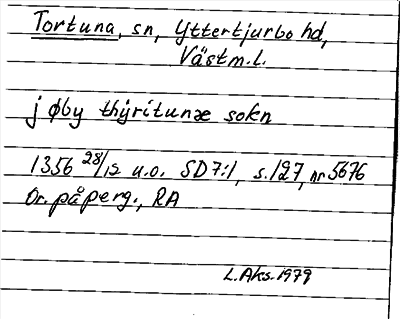 Tortuna, sn, Yttertjurbo hd,
Västm.l.
j øby thyritunæ sokn
1356 28/12 u.o. SD 7:1, s.127, nr 5676
Or. på perg., RA
L. Aks. 1979